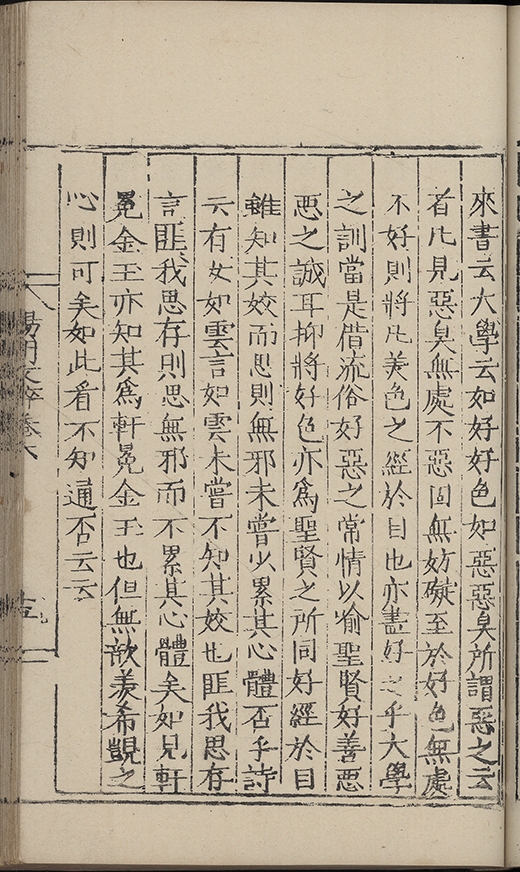 來書云大學云如好好色如惡惡臭所謂惡之云
者凡見惡臭無處不惡固無妨礙至於好色無處
不好則將凡美色之經於目也亦盡好之乎大學
之訓當是借流俗好惡之常情以喻聖賢好善惡
惡之誠耳抑將好色亦爲聖賢之所同好經於目
雖知其姣而思則無邪未嘗少累其心體否乎詩
云有女如雲言如雲未嘗不知其姣也匪我思存
言匪我思存則思無邪而不累其心體矣如見軒
冕金玉亦知其爲軒冕金玉也但無歆羨希覬之
心則可矣如此看不知通否云云
陽明文粹卷六
十五